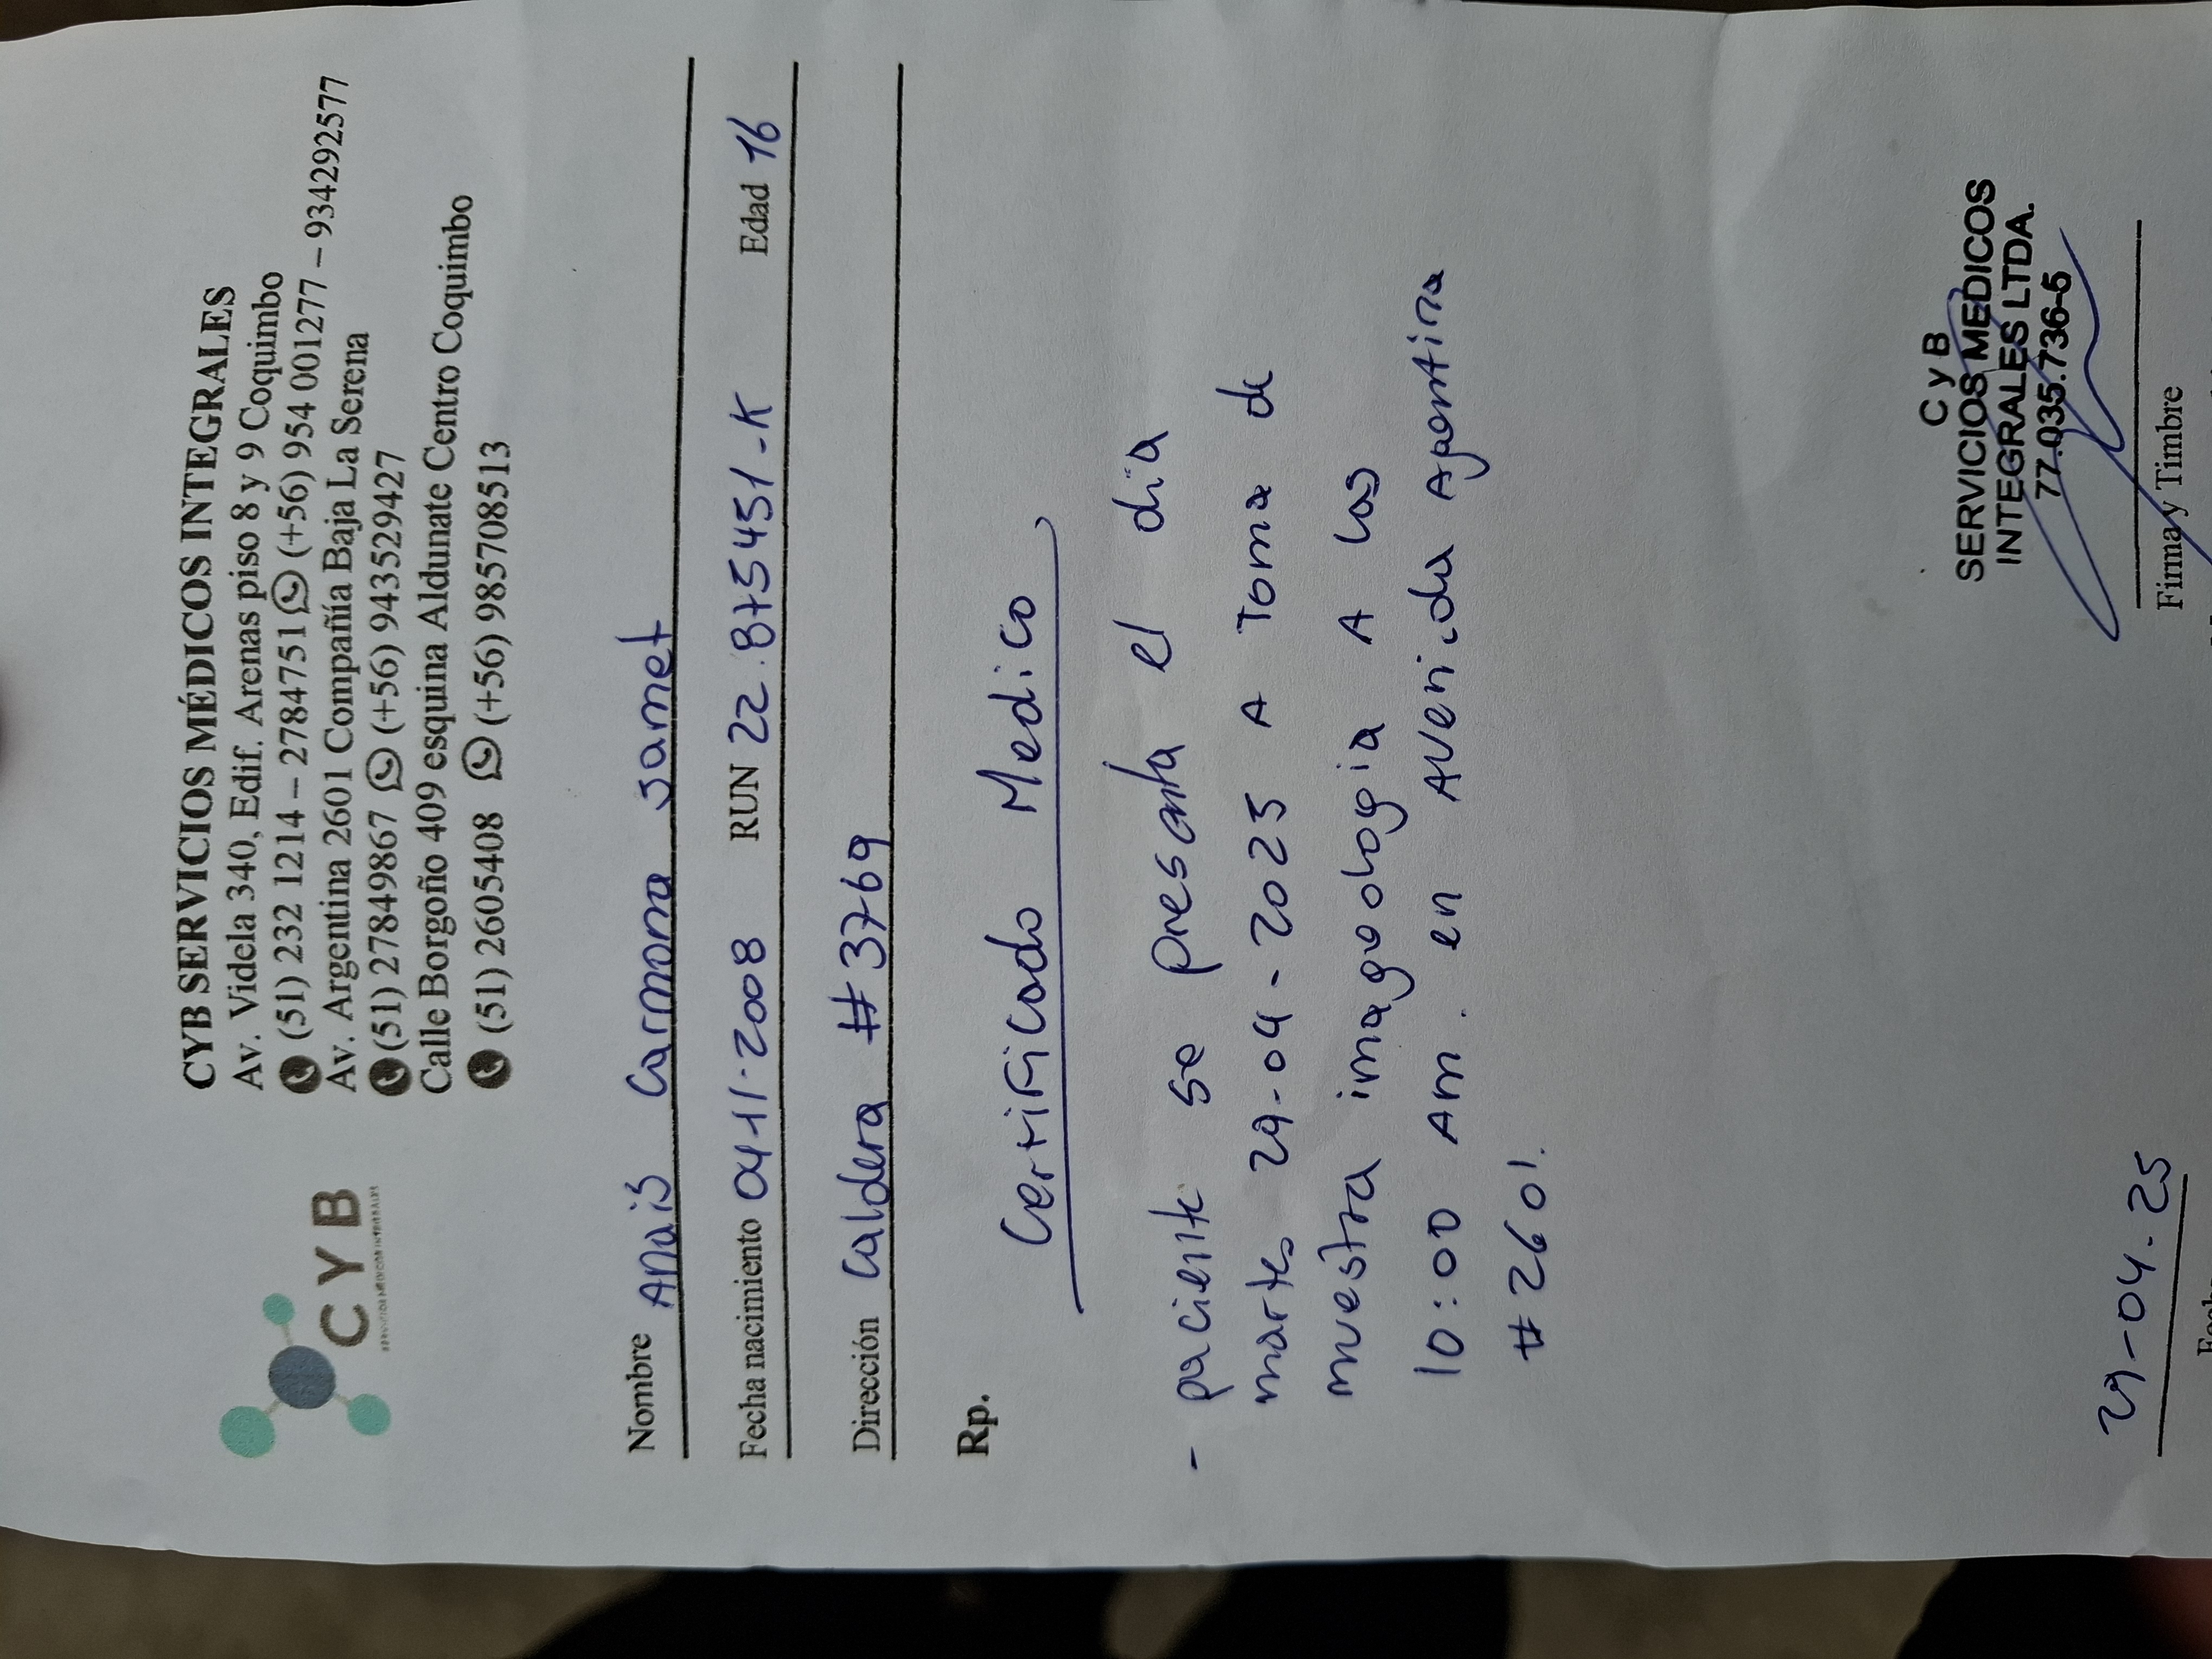 CYB SERVICIOS MÉDICOS INTEGRALES
Av. Videla 340, Edif. Arenas piso 8 y 9 Coquimbo
(51) 232 1214 – 2784751 (+56) 954 001277 – 934292577
Av. Argentina 2601 Compañía Baja La Serena
(51) 27849867 (+56) 943529427
Calle Borgoño 409 esquina Aldunate Centro Coquimbo
(51) 2605408 (+56) 985708513
CYB
Nombre Anais Carmona Jamet
Fecha nacimiento 04-11-2008 RUN 22.875451-K Edad 16
Dirección Caldera #3769
Rp.
Certificado Medico
- paciente se presenta el dia
martes 29-04-2025 A Toma de
muestra imagoologia A las
10:00 Am. en Avenida Agentina
#2601.
C y B
SERVICIOS MEDICOS
INTEGRALES LTDA.
77.035.736-5
29-04-25
Firma y Timbre